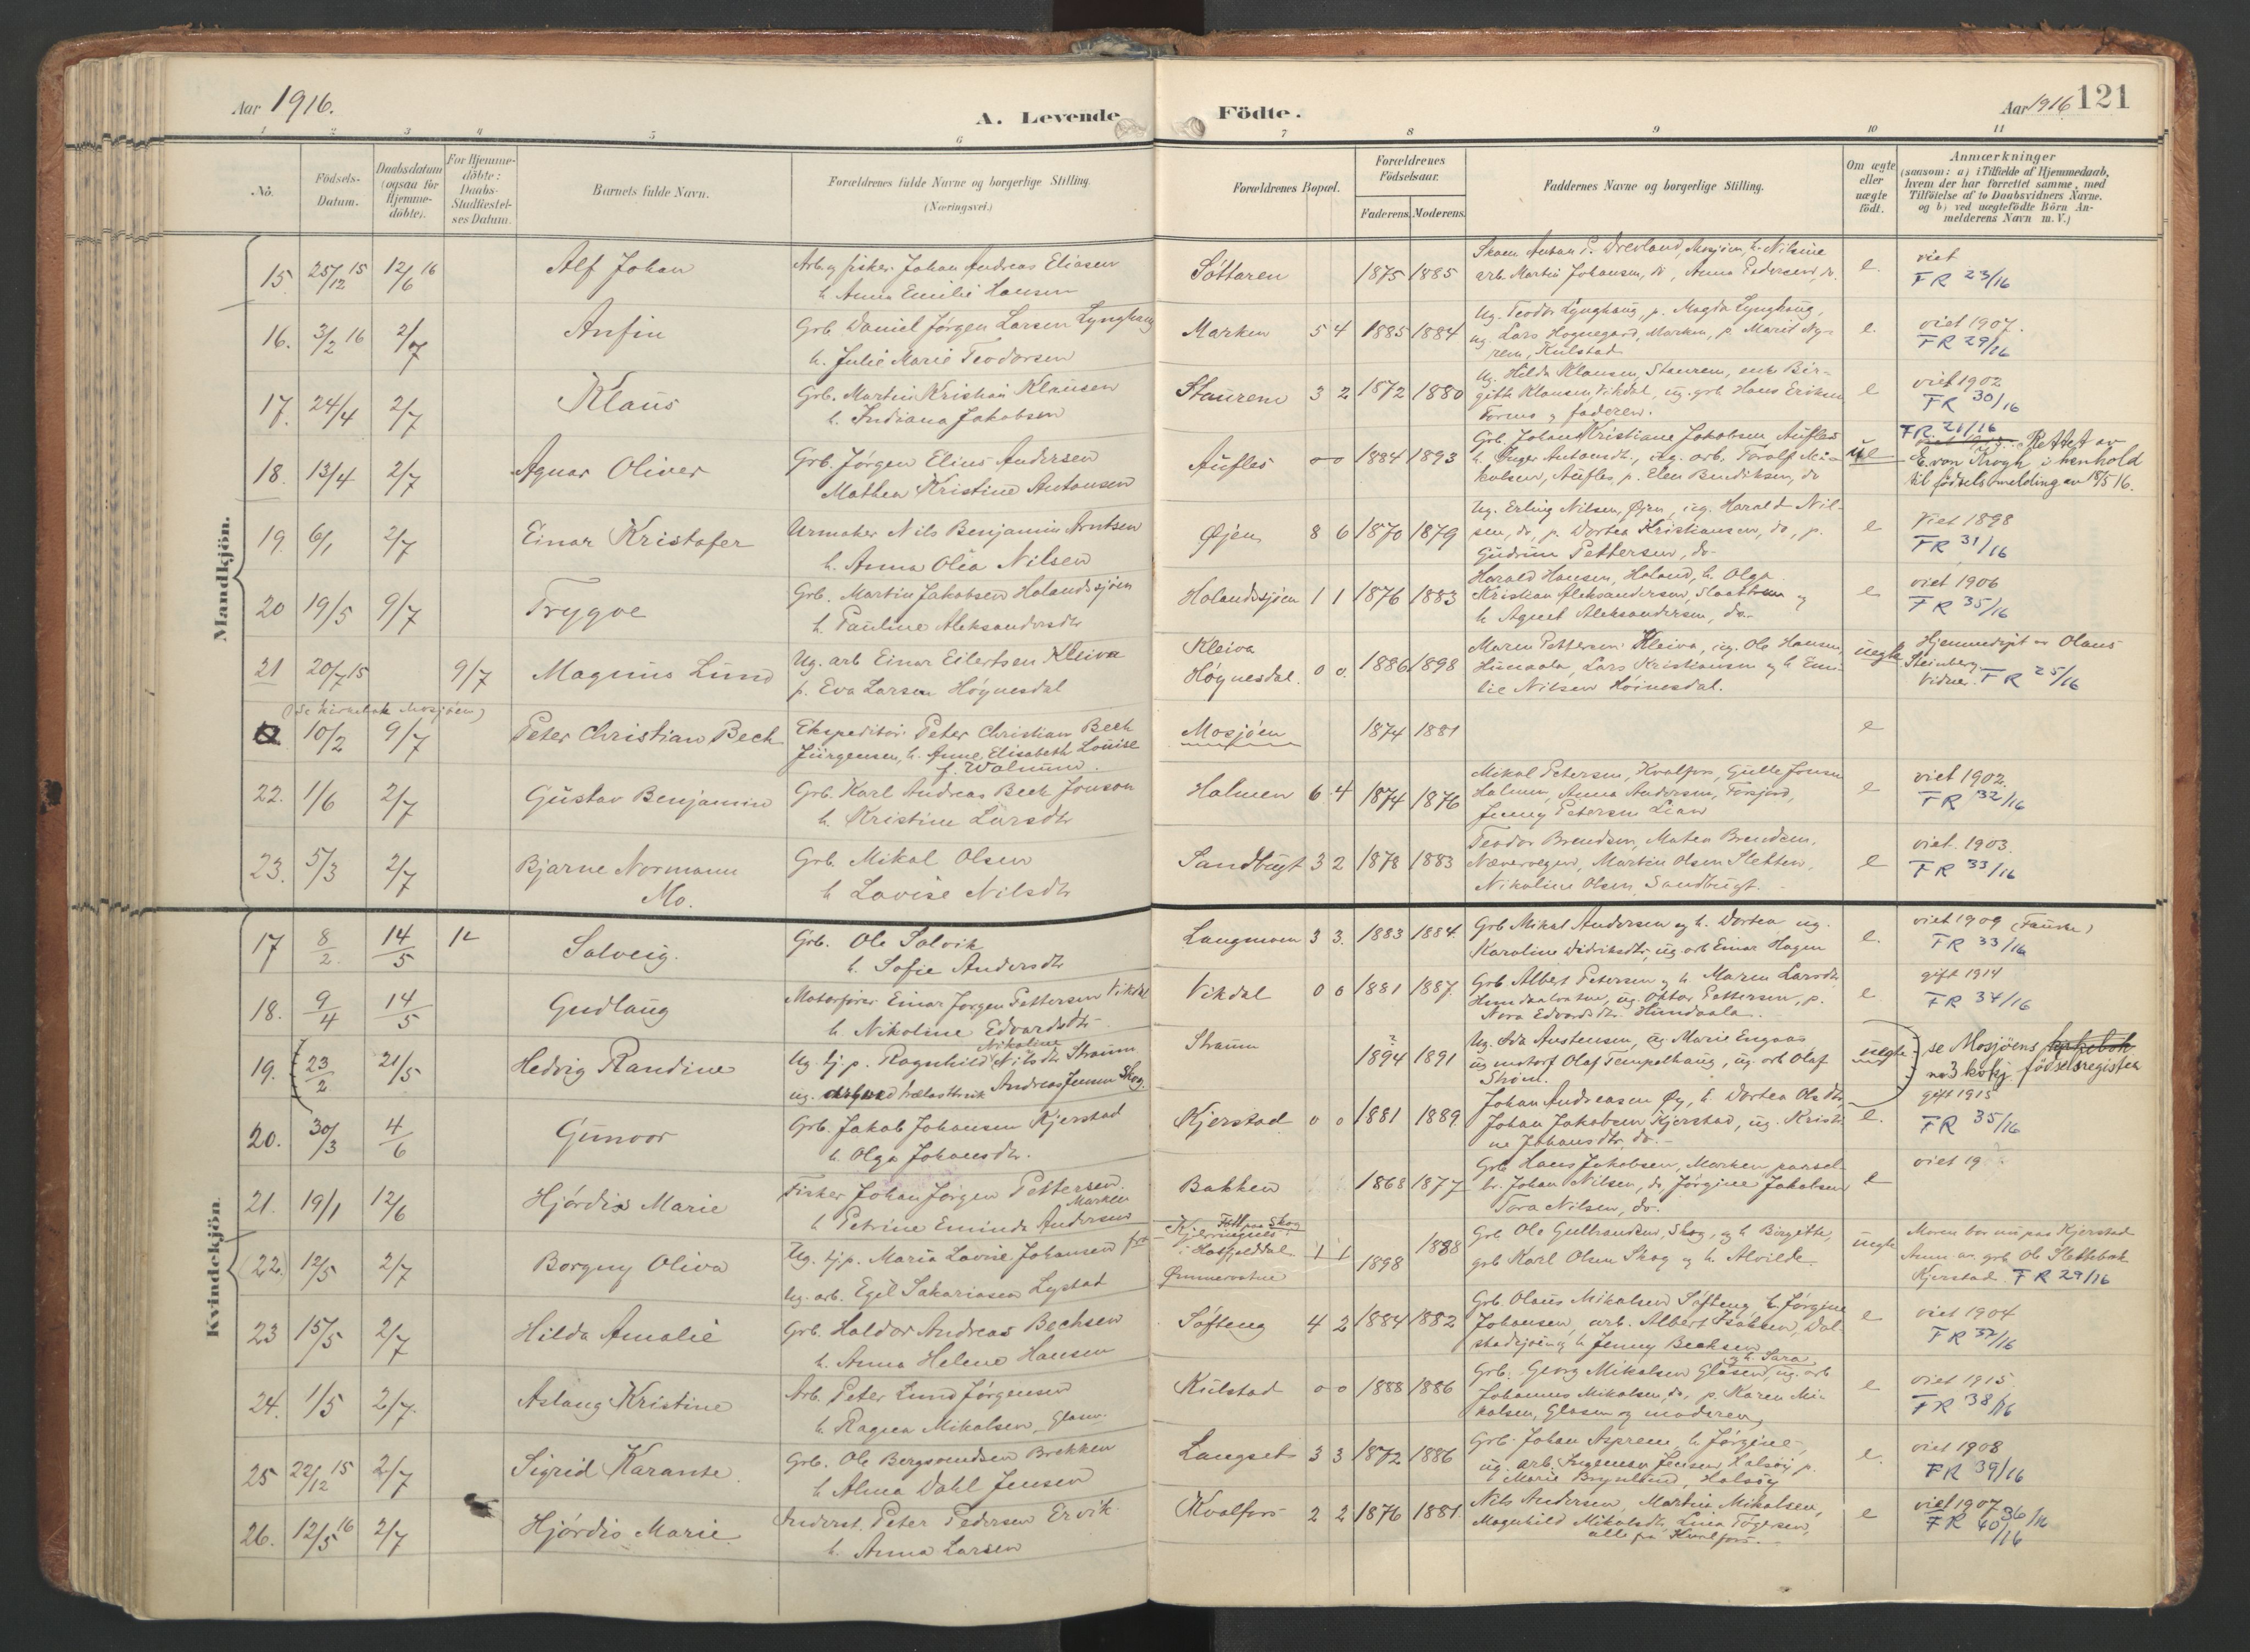 Aar 1916.
A. Levende Födte.
Aar 1916 121
1 2 3 4 5 6 7 8 9 10 11
No.
Födsels-Datum.
Daabsdatum (ogsaa for Hjemmedöbte).
For Hjemmedöbte: Daabs-Stadfæstelses Datum.
Barnets fulde Navn.
Forældrenes fulde Navne og borgerlige Stilling. (Næringsvei.)
Forældrenes Bopæl.
Forældrenes Födselsaar.
Faderens. Moderens.
Faddernes Navne og borgerlige Stilling.
Om ægte eller uægte födt.
Anmærkninger
(saasom: a) i Tilfælde af Hjemmedaab, hvem der har forrettet samme, med Tilföielse af to Daabsvidners Navne. og b) ved uægtefödte Börn Anmelderens Navn m. V.)
Mandkjön.
15. 25/12 15 12/6 16 Alf Johan
Arb. og fisker Johan Andreas Eliasen
h. Anna Emilie Hansen
Söttaren 1875 1885
arb. Martin Johansen, do, Anna Pedersen, do.
e. viet
FR 23/16
16. 3/2 16 2/7 Anfin
Grb. Daniel Jørgen Larsen Lynghaug
h. Julie Marie Teodorsen
Marken 5 4 1885 1884
Ug. Teodor Lynghaug, p. Magda Lynghaug,
ug. Lars Hognegard, Marken, p. Marit Nyrem, Kulstad
e. viet 1907.
FR 29/16
17. 24/4 2/7 Klaus
Grb. Martin Kristian Klausen
h. Indiana Jakobsen
Staurem 3 2 1872 1880
Ug. Hilda Klausen, Staurem, enk Birgith Klausen, Vikdal, ug. grb Hans Eriksen
Formo og faderen.
e viet 1902
FR 30/16
18. 13/4 2/7 Agnar Oliver
Grb. Jørgen Elius Andersen
Mathea Kristine Antonsen
Aufles 0 0 1884 1893
Grb. Johan Kristiane Jakobsen Aufles
h. Inger Antonsdt., ug. arb. Torolf Mikalsen, Aufles, p. Elen Bendiksen, do
FR 21/16
Rettet av
E. von Krogh i henhold
til födselsmelding av 18/5 16.
19. 6/1 2/7 Einar Kristofer
Urmaker Nils Benjamin Arntsen
h. Anna Olea Nilsen
Øjen 8 6 1870 1879
Ug. Erling Nilsen, Øjen, ug. Harald Nilsen, do, p. Dortea Kristiansen, do, p.
Gudrun Pettersen, do.
e Viet 1898
FR 31/16
20 19/5 9/7 Trygve
Grb. Martin Jakobsen Holandsjöen
h. Pauline Aleksandersdtr
Holandsjöen 1 1 1876 1883
Harald Hansen, Holand, h. Olga
Kristian Aleksandersen, og
h Agnet Aleksandersen, do.
e viet 1906
FR 35/16
21 20/7 15 9/7 Magnus Lund
Ug. arb Einar Eilertsen Kleiva
p. Eva Larsen Høgnesdal
Kleiva
Høgnesdal. 0 0. 1886 1898
Maren Pettersen Kleiva, ug. Ole Hansen,
Hundaala, Lars Kristiansen og h Emilie Nilsen Höinesdal.
uegte Hjemmedøpt av Olaus
Steinberg.
Vidner. FR 25/16
(Se kirkebok Mosjöen)
10/2 9/7 Peter Christian Bech
Ekspeditör Peter Christian Bech
Jürgensen, h. Anne Elisabeth Louise
f. Walnum.
Mosjöen 1874 1881 e
22. 1/6 2/7 Gustav Benjamin
Grb. Karl Andreas Bech Jonson
h. Kristine Larsdtr
Halmen 6 4 1874 1876
Mikal Petersen, Kvalfors, Gulle Jonsen
Halmen, Anna Andersen, Forsjord,
Jenny Petersen Lian
e viet 1902.
FR 32/16
23. 5/3 2/7 Bjarne Normann
Mo.
Grb. Mikal Olsen
h Lovise Nilsdtr
Sandbugt 3 2 1878 1883
Teodor Brendsen, Matea Brendsen,
Nævervegen, Martin Olsen Sletten,
Nikoline Olsen, Sandbugt.
e viet. 1903.
FR 33/16
Kvindekjön.
17 8/2 14/5 Solveig.
Grb. Ole Solvik
h. Sofie Andersdtr
Langmoen 3 3. 1883 1884.
Grb Mikal Andersen og h. Dortea ug.
Karoline Didriksdtr, ug arb Einar Hagen
e. viet 1909 (Fauske)
FR 33/16
18. 9/4 14/5 Gudlaug
Motorfører Einar Jørgen Pettersen Vikdal
h. Nikoline Edvardsdtr
Vikdal 0 0 1881 1887.
Grb Albert Petersen og h Maren Larsdtr
Hundaalvatne, ug. Oktav Pettersen, p.
Nora Edvardsdtr. Hundaala.
e gift 1914
FR 34/16
19. 23/2 21/5 Hedvig Randine
Ug. tj. p. Ragnhild Nikoline Nilsdtr Straum
ug. Andreas Jensen Skog.
Straum 1894? 1891
Ug. Ida Austensen, ug Marie Engaas
ug motorf Olaf Tempelhaug, ug. arb Olaf
Strøm.
uegte se Mosjöens kirkebok
no 3 kvkj. födselsregister
20. 30/3 4/6 Gunvor
Grb. Jakob Johansen Kjerstad
h. Olga Johansdtr.
Kjerstad 0 0 1881 1889.
Johan Andreasen Øy, h. Dortea Olsdtr,
Johan Jakobsen Kjerstad, ug. Kristine Johansdtr. do.
e. gift 1915
FR 35/16
21. 19/1 12/6 Hjördis Marie
Fisker Johan Jørgen Pettersen
Marken
h Petrine Eminde Andersen
Bakken 1868 1877
Grb Hans Jakobsen, Marken
Johan Nilsen, do, Jørgine Jakobsen
Tora Nilsen, do.
e viet 19
(22.) 12/5 2/7 Borgny Oliva
Ug. tj. p. Maria Lovise Johansen fra
Ug. arb. Egil Sakariasen Lystad
Födt paa Skog
i Hatfjelddal 1 1
Ømmervatne
1898 1898
Grb Ole Gulbrandsen, Skog, og h Birgitte,
grb Karl Olsen Skog og h. Alvilde.
uegte Moren bor nu paa Kjerstad
Anm av grb Ole Slettebak
Kjerstad. FR 29/16
23 15/5 2/7 Hilda Amalie
Grb. Haldor Andreas Bechsen
h. Anna Helene Hansen
Söfteng 4 2 1884 1882
Grb. Olaus Mikalsen Söfteng, h. Jörgine
Johansen, arb. Albert Isaksen, Dolstadsjøen, h Jenny Bechsen
e viet 1904
FR 37/16
24. 1/5 2/7. Aslaug Kristine
Arb. Peter Lund Jørgensen
h. Ragna Mikalsen, Glasen.
Kulstad 0 0 1888 1886
og h. Sara
Grb. Georg Mikalsen Glasen, ug. arb
Johannes Mikalsen, do, p. Karen Mikalsen, Glasen og moderen,
e viet 1915
FR 38/16
25 22/12 15 2/7 Sigrid Karante
Grb. Ole Bergsvendsen Brekken
h Alma Dahl Jensen
Langset 3 3 1872 1886
Grb. Johan Asprem, h Jørgine,
ug. arb. Ingeman Jensen Halsøy p.
Marie Brynlund, Halsøy
e. viet 1908
FR 39/16
26. 12/5 16 2/7 Hjördis Marie
Inderst. Peter Pedersen Ervik
h. Anna Larsen
Kvalfors 2 2 1876 1881.
Nils Andersen, Martin Mikalsen,
Magnhild Mikalsdtr, Lina Tøgersen,
alle på Kvalfors.
e viet 1907
FR 40/16 36/16